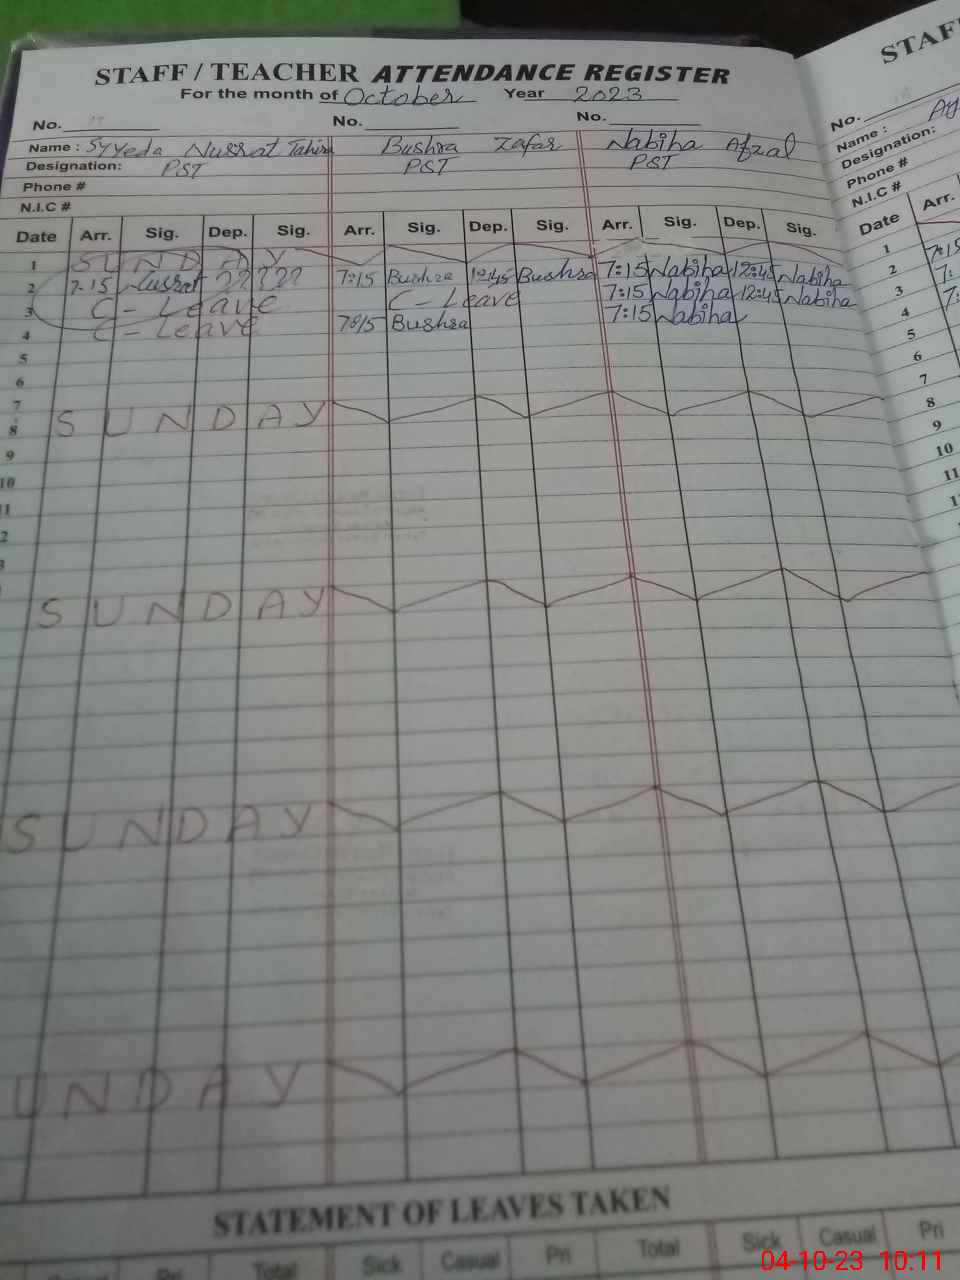 STAFF / TEACHER ATTENDANCE REGISTER
For the month of October Year 2023
No. No. No.
Name : Syyeda Nusrat Tahira Bushra Zafar Nabiha Afzal
Designation: PST PST PST
Phone #
N.I.C #
Date Arr. Sig. Dep. Sig. Arr. Sig. Dep. Sig. Arr. Sig. Dep. Sig.
1 SUNDAY
2 7:15 Nusrat ?? ??? 7:15 Bushra 12:45 Bushra 7:15 Nabiha 12:45 Nabiha
3 C - Leave C - Leave 7:15 Nabiha 12:45 Nabiha
4 C - Leave 7:15 Bushra 7:15 Nabiha
5
6
7
8 SUNDAY
9
10
11
2
3
SUNDAY
SUNDAY
UNDAY
STATEMENT OF LEAVES TAKEN
Casual Pri Total Sick Casual Pri Total Sick Casual Pri
STAF
No.
Name :
Designation:
Phone #
N.I.C #
Date Arr.
1 7:15
2 7:
3 7:
4
5
6
7
8
9
10
11
04-10-23 10:11